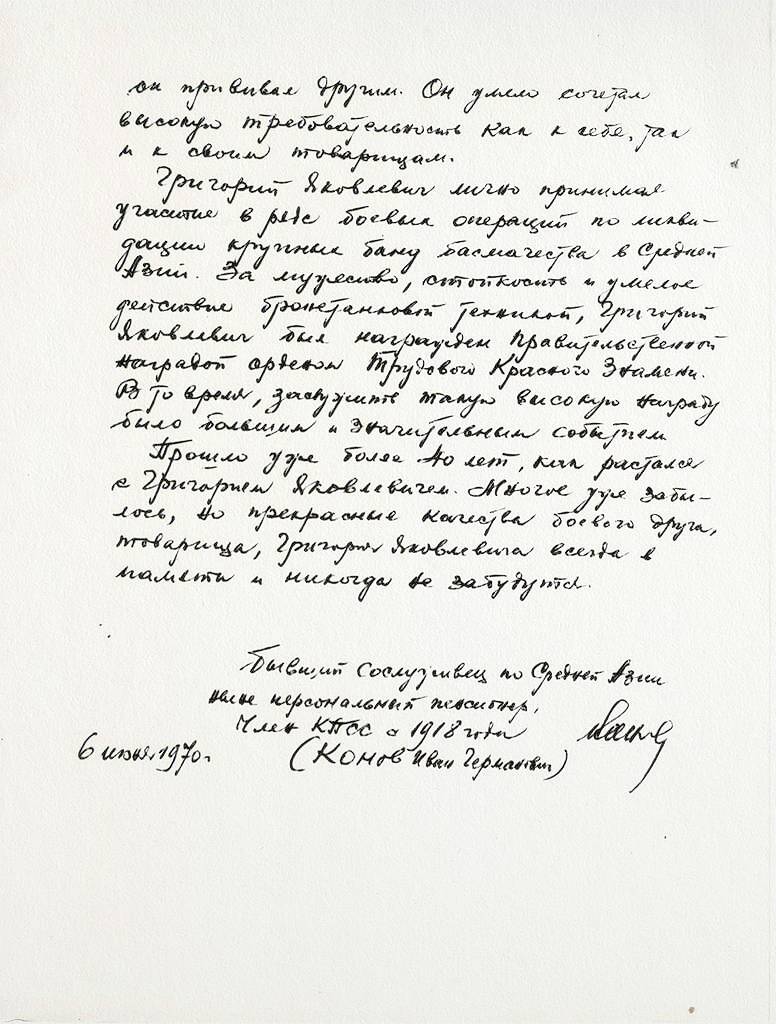 он прививал другим. Он умело сочетал
высокую требовательность как к себе, так
и к своим товарищам.
Григорий Яковлевич лично принимал
участие в ряде боевых операций по ликви-
дации крупных банд басмачества в Средней
Азии. За мужество, стойкость и умелое
действие бронетанковой техникой, Григорий
Яковлевич был награжден Правительственной
наградой орденом Трудового Красного Знамени.
В то время, заслужить такую высокую награду
было большим и значительным событием
Прошло уже более 40 лет, как растался
с Григорием Яковлевичем. Многое уже забы-
лось, но прекрасные качества боевого друга,
товарища, Григория Яковлевича всегда в
памяти и никогда не забудутся.
Бывший сослуживец по Средней Азии
ныне персональный пенсионер,
Член КПСС с 1918 года
6 1970г. (Конов Иван Германович)